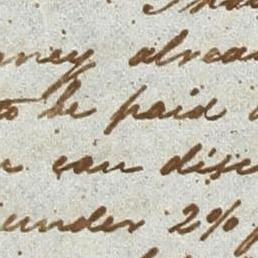 ney alrea
to be paid
can disc
under 2%